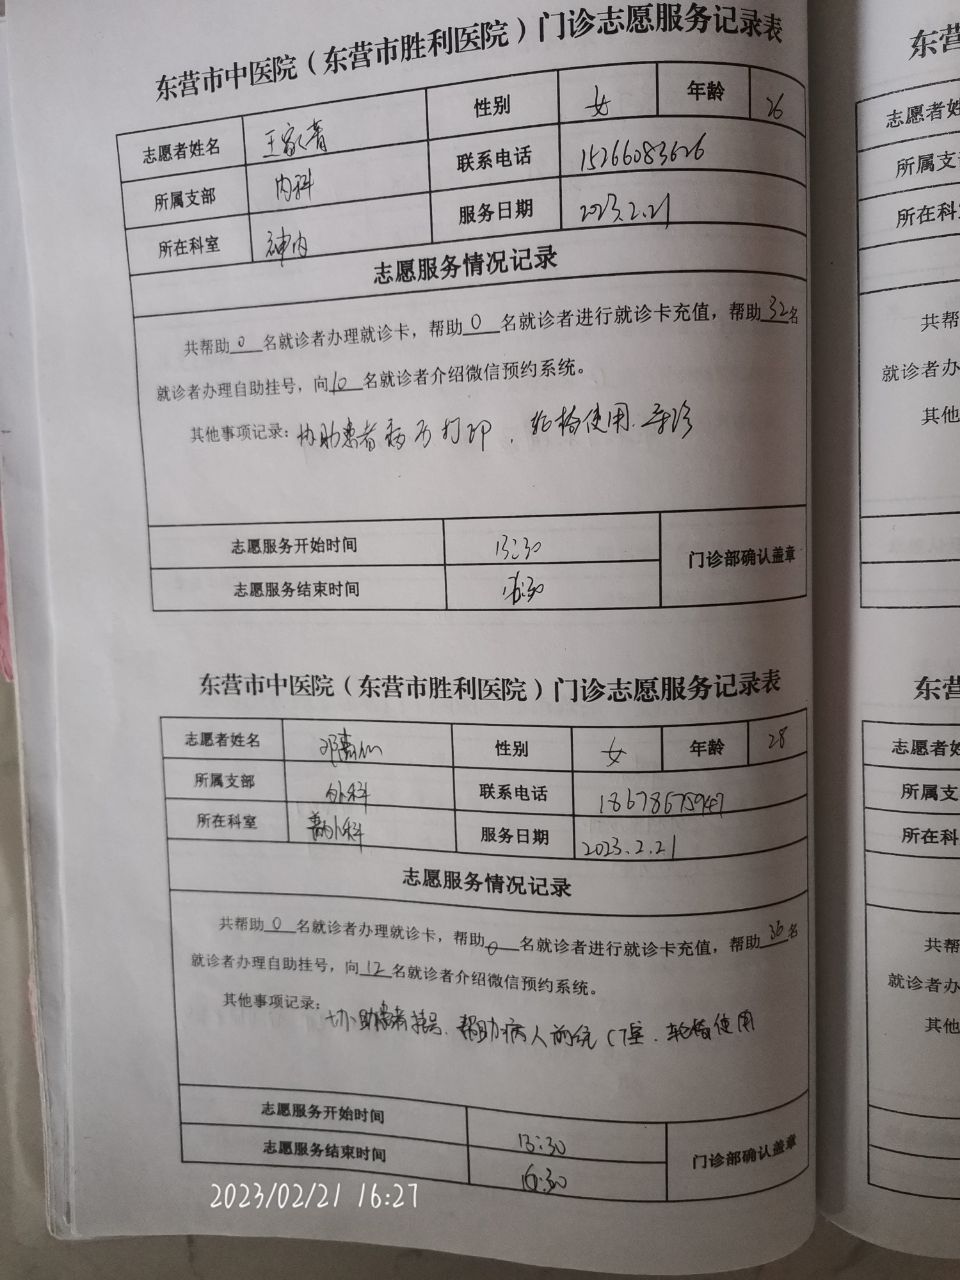 东营市中医院（东营市胜利医院）门诊志愿服务记录表
志愿者姓名 王家青 性别 女 年龄 26
所属支部 内科 联系电话 15266083626
所在科室 神内 服务日期 2023.2.21
志愿服务情况记录
共帮助0名就诊者办理就诊卡，帮助0名就诊者进行就诊卡充值，帮助32名
就诊者办理自助挂号，向10名就诊者介绍微信预约系统。
其他事项记录：协助患者病历打印，轮椅使用.导诊
志愿服务开始时间 13:30 门诊部确认盖章
志愿服务结束时间 16:30
东营市中医院（东营市胜利医院）门诊志愿服务记录表
志愿者姓名 性别 女 年龄 28
所属支部 外科 联系电话 18678675947
所在科室 外科 服务日期 2023.2.21
志愿服务情况记录
共帮助0名就诊者办理就诊卡，帮助0名就诊者进行就诊卡充值，帮助36名
就诊者办理自助挂号，向12名就诊者介绍微信预约系统。
其他事项记录：协助患者 帮助病人前往CT室.轮椅使用
志愿服务开始时间 13:30 门诊部确认盖章
志愿服务结束时间 16:30
2023/02/21 16:27
东营
志愿者姓
所属支
所在科
共帮
就诊者办
其他
东营
志愿者姓
所属支
所在科
共帮
就诊者办
其他